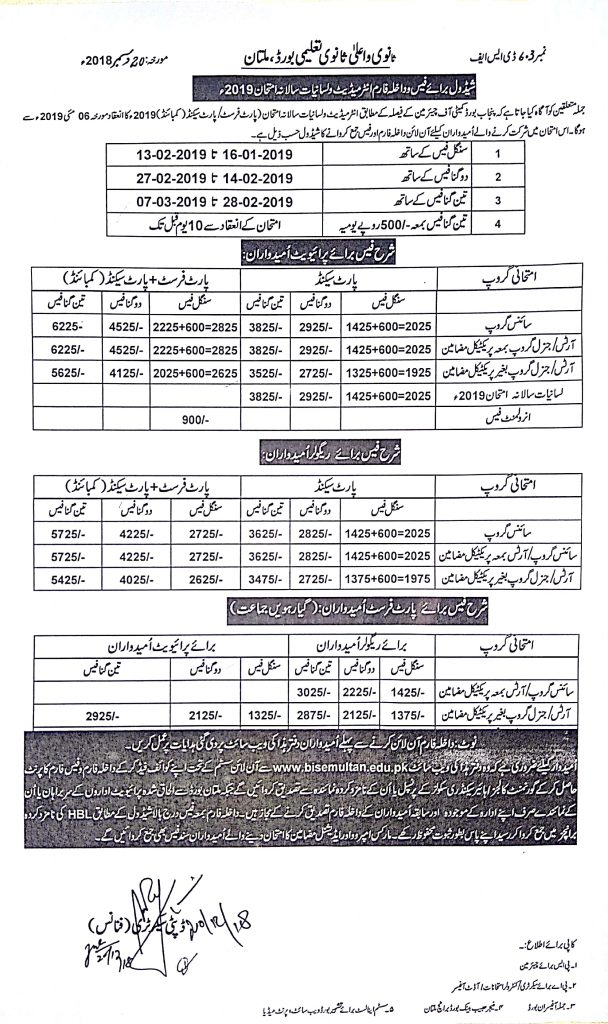 نمبر 603 ڈی ایس ایف
ثانوی و اعلیٰ ثانوی تعلیمی بورڈ، ملتان
مورخہ: 20 دسمبر 2018ء
شیڈول برائے فیس و داخلہ فارم انٹر میڈیٹ و لسانیات سالانہ امتحان 2019ء
جملہ متعلقین کو آگاہ کیا جاتا ہے کہ پنجاب بورڈ کمیٹی آف چیئرمین کے فیصلہ کے مطابق انٹر میڈیٹ و لسانیات سالانہ امتحان (پارٹ فرسٹ/پارٹ سیکنڈ/کمبائنڈ) 2019ء کا انعقاد مورخہ 06 مئی 2019ء سے
ہوگا۔ اس امتحان میں شرکت کرنے والے اُمیدواران کیلئے آن لائن داخلہ فارم اور فیس جمع کروانے کا شیڈول حسب ذیل ہے۔
1 سنگل فیس کے ساتھ 16-01-2019 تا 13-02-2019
2 دوگنا فیس کے ساتھ 14-02-2019 تا 27-02-2019
3 تین گنا فیس کے ساتھ 28-02-2019 تا 07-03-2019
4 تین گنا فیس بمعہ -/500 روپے یومیہ امتحان کے انعقاد سے 10 یوم قبل تک
شرح فیس برائے پرائیویٹ اُمیدواران:
امتحانی گروپ پارٹ سیکنڈ پارٹ فرسٹ + پارٹ سیکنڈ (کمبائنڈ)
سنگل فیس دوگنا فیس تین گنا فیس سنگل فیس دوگنا فیس تین گنا فیس
سائنس گروپ 1425+600=2025 2925/- 3825/- 2225+600=2825 4525/- 6225-
آرٹس/جنرل گروپ بمعہ پریکٹیکل مضامین 1425+600=2025 2925/- 3825/- 2225+600=2825 4525/- 6225/-
آرٹس/جنرل گروپ بغیر پریکٹیکل مضامین 1325+600=1925 2725/- 3525/- 2025+600=2625 4125/- 5625/-
لسانیات سالانہ امتحان 2019ء 1425+600=2025 2925/- 3825/-
انرولمنٹ فیس 900/-
شرح فیس برائے ریگولر اُمیدواران:
امتحانی گروپ پارٹ سیکنڈ پارٹ فرسٹ + پارٹ سیکنڈ (کمبائنڈ)
سنگل فیس دوگنا فیس تین گنا فیس سنگل فیس دوگنا فیس تین گنا فیس
سائنس گروپ 1425+600=2025 2825/- 3625/- 2725/- 4225/- 5725/-
سائنس گروپ/آرٹس بمعہ پریکٹیکل مضامین 1425+600=2025 2825/- 3625/- 2725/- 4225/- 5725/-
آرٹس/جنرل گروپ بغیر پریکٹیکل مضامین 1375+600=1975 2725/- 3475/- 2625/- 4025/- 5425/-
شرح فیس برائے پارٹ فرسٹ اُمیدواران: (گیارہویں جماعت)
امتحانی گروپ برائے ریگولر اُمیدواران برائے پرائیویٹ اُمیدواران
سنگل فیس دوگنا فیس تین گنا فیس سنگل فیس دوگنا فیس تین گنا فیس
سائنس گروپ/آرٹس بمعہ پریکٹیکل مضامین 1425/- 2225/- 3025/-
آرٹس/جنرل گروپ بغیر پریکٹیکل مضامین 1375/- 2125/- 2875/- 1325/- 2125/- 2925/-
نوٹ: داخلہ فارم آن لائن کرنے سے پہلے اُمیدواران دفتر ہذا کی ویب سائٹ پر دی گئی ہدایات پر عمل کریں۔
اُمیدوار کیلئے ضروری ہے کہ وہ دفتر ہذا کی ویب سائٹ www.bisemultan.edu.pk سے آن لائن سسٹم کے تحت اپنے کوائف فیڈ کر کے داخلہ فارم و فیس فارم کا پرنٹ
حاصل کر کے گورنمنٹ کالجز/ہائیر سیکنڈری سکولز کے پرنسپل یا اُن کے نامزد کردہ نمائندہ سے تصدیق کروائیں گے جبکہ ملتان بورڈ سے الحاق شدہ پرائیویٹ اداروں کے سربراہان یا اُن
کے نمائندے صرف اپنے ادارہ کے موجودہ اور سابقہ اُمیدواران کے داخلہ فارم تصدیق کرنے کے مجاز ہیں۔ داخلہ فارم بمعہ فیس درج بالا شیڈول کے مطابق HBL کی نامزد کردہ
برانچز میں جمع کروا کر رسید اپنے پاس بطور ثبوت محفوظ رکھے۔ مارکس امپروو اور ایڈیشنل مضامین کا امتحان دینے والے اُمیدواران سند فیس بھی جمع کروائیں گے۔
20/12/18
ڈپٹی سیکرٹری (فنانس)
کاپی برائے اطلاع:۔
۱۔ پی ایس برائے چیئرمین
۲۔ پی اے برائے سیکرٹری/کنٹرولر امتحانات/آڈٹ آفیسر
۳۔ جملہ آفیسران بورڈ ۴۔ منیجر حبیب بینک بورڈ برانچ ملتان ۵۔ سسٹم اینالسٹ برائے تشہیر بورڈ ویب سائٹ، پرنٹ میڈیا